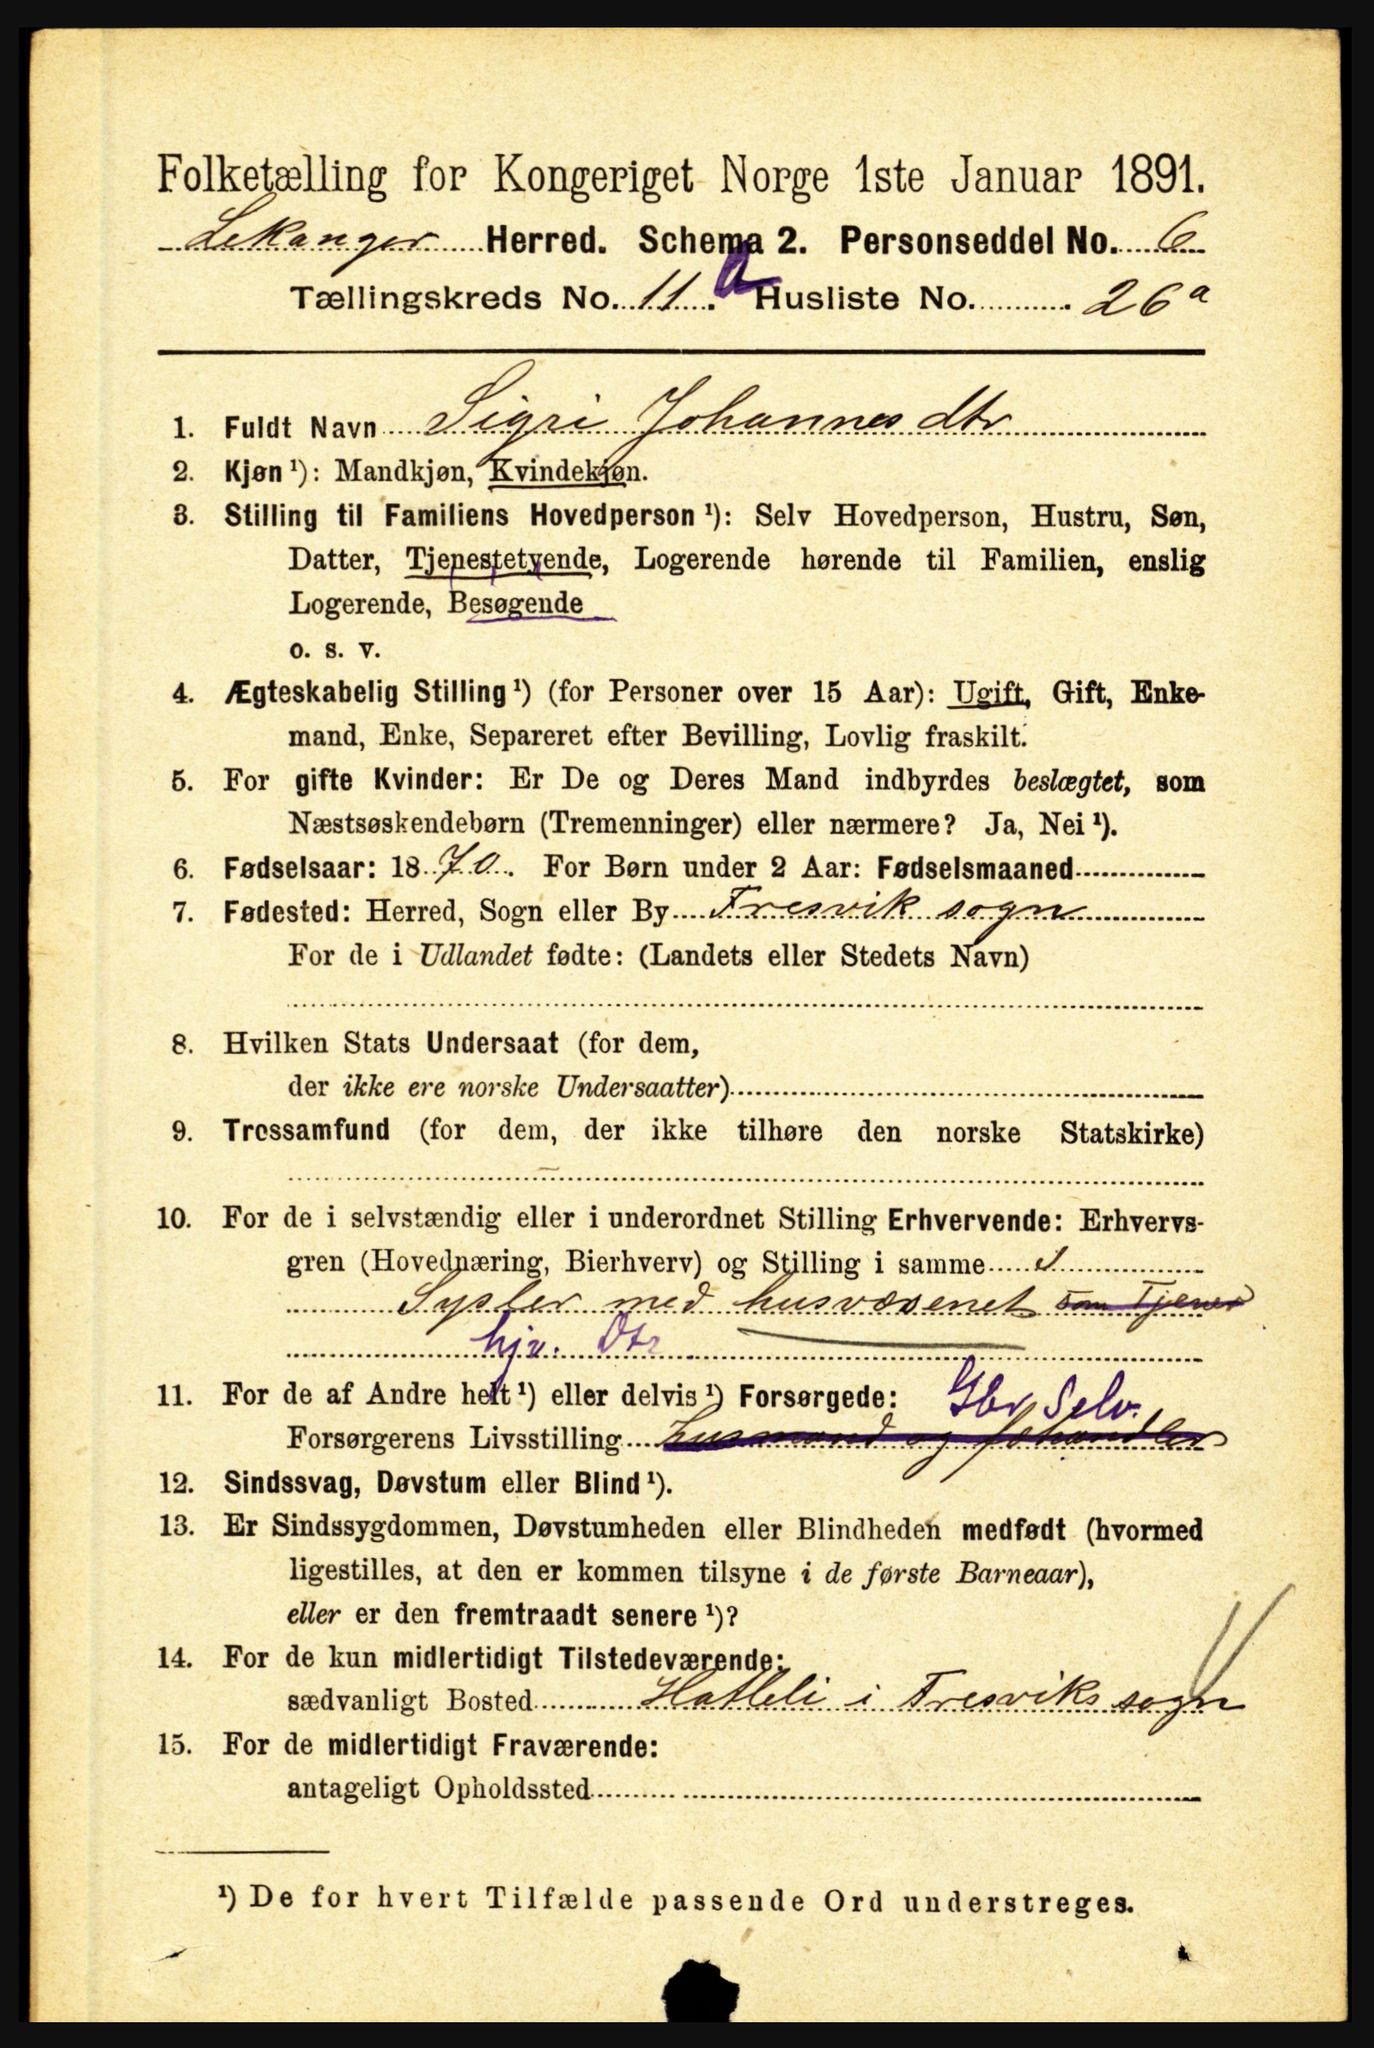 Folketælling for Kongeriget Norge 1ste Januar 1891.
Lekanger Herred. Schema 2. Personseddel No. 6
Tællingskreds No. 11. a Husliste No. 26 a
1. Fuldt Navn Sigri Johannesdtr
2. Kjøn ¹): Mandkjøn, Kvindekjøn.
3. Stilling til Familiens Hovedperson ¹): Selv Hovedperson, Hustru, Søn,
Datter, Tjenestetyende, Logerende hørende til Familien, enslig
Logerende, Besøgende
o. s. v.
4. Ægteskabelig Stilling ¹) (for Personer over 15 Aar): Ugift, Gift, Enke-
mand, Enke, Separeret efter Bevilling, Lovlig fraskilt.
5. For gifte Kvinder: Er De og Deres Mand indbyrdes beslægtet, som
Næstsøskendebørn (Tremenninger) eller nærmere? Ja, Nei ¹).
6. Fødselsaar: 1870. For Børn under 2 Aar: Fødselsmaaned
7. Fødested: Herred, Sogn eller By Fresvik sogn
For de i Udlandet fødte: (Landets eller Stedets Navn)
8. Hvilken Stats Undersaat (for dem,
der ikke ere norske Undersaatter)
9. Trossamfund (for dem, der ikke tilhøre den norske Statskirke)
10. For de i selvstændig eller i underordnet Stilling Erhvervende: Erhvervs-
gren (Hovednæring, Bierhverv) og Stilling i samme
Sysler med husvæsenet som Tjener
hjv. Dtr
11. For de af Andre helt ¹) eller delvis ¹) Forsørgede: Gbr. Selv.
Forsørgerens Livsstilling husmand og
12. Sindssvag, Døvstum eller Blind ¹).
13. Er Sindssygdommen, Døvstumheden eller Blindheden medfødt (hvormed
ligestilles, at den er kommen tilsyne i de første Barneaar),
eller er den fremtraadt senere ¹)?
14. For de kun midlertidigt Tilstedeværende:
sædvanligt Bosted Hatleli i Fresviks sogn
15. For de midlertidigt Fraværende:
antageligt Opholdssted
¹) De for hvert Tilfælde passende Ord understreges.